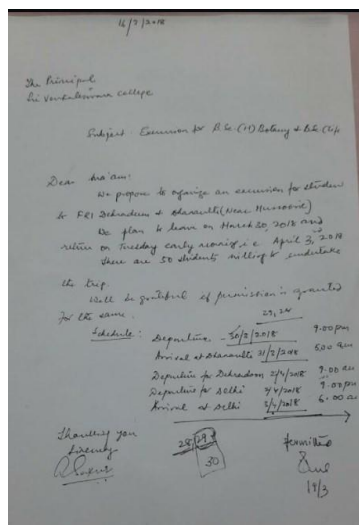 16/3/2018
The Principal
Sri Venkateswara College
Subject - Excursion for B.Sc. (H) Botany & B.Sc.
Dear Ma'am:
We propose to organize an excursion for student
to FRI Dehradun & Dhanaulti (Near Mussoorie)
We plan to leave on March 30, 2018 and
return on Tuesday early morning i.e. April 3, 2018
There are 50 students willing to undertake
the trip.
Will be grateful if permission is granted
for the same.
Schedule: Departure - 30/3/2018 9.00 pm
Arrival at Dhanaulti 31/3/2018 5.00 am
Departure for Dehradoon 2/4/2018 9.00 am
Departure for Delhi 2/4/2018 9.00 pm
Arrival at Delhi 6.00 am
Thanking you
Sincerely
28, 29
30
Permitted
19/3